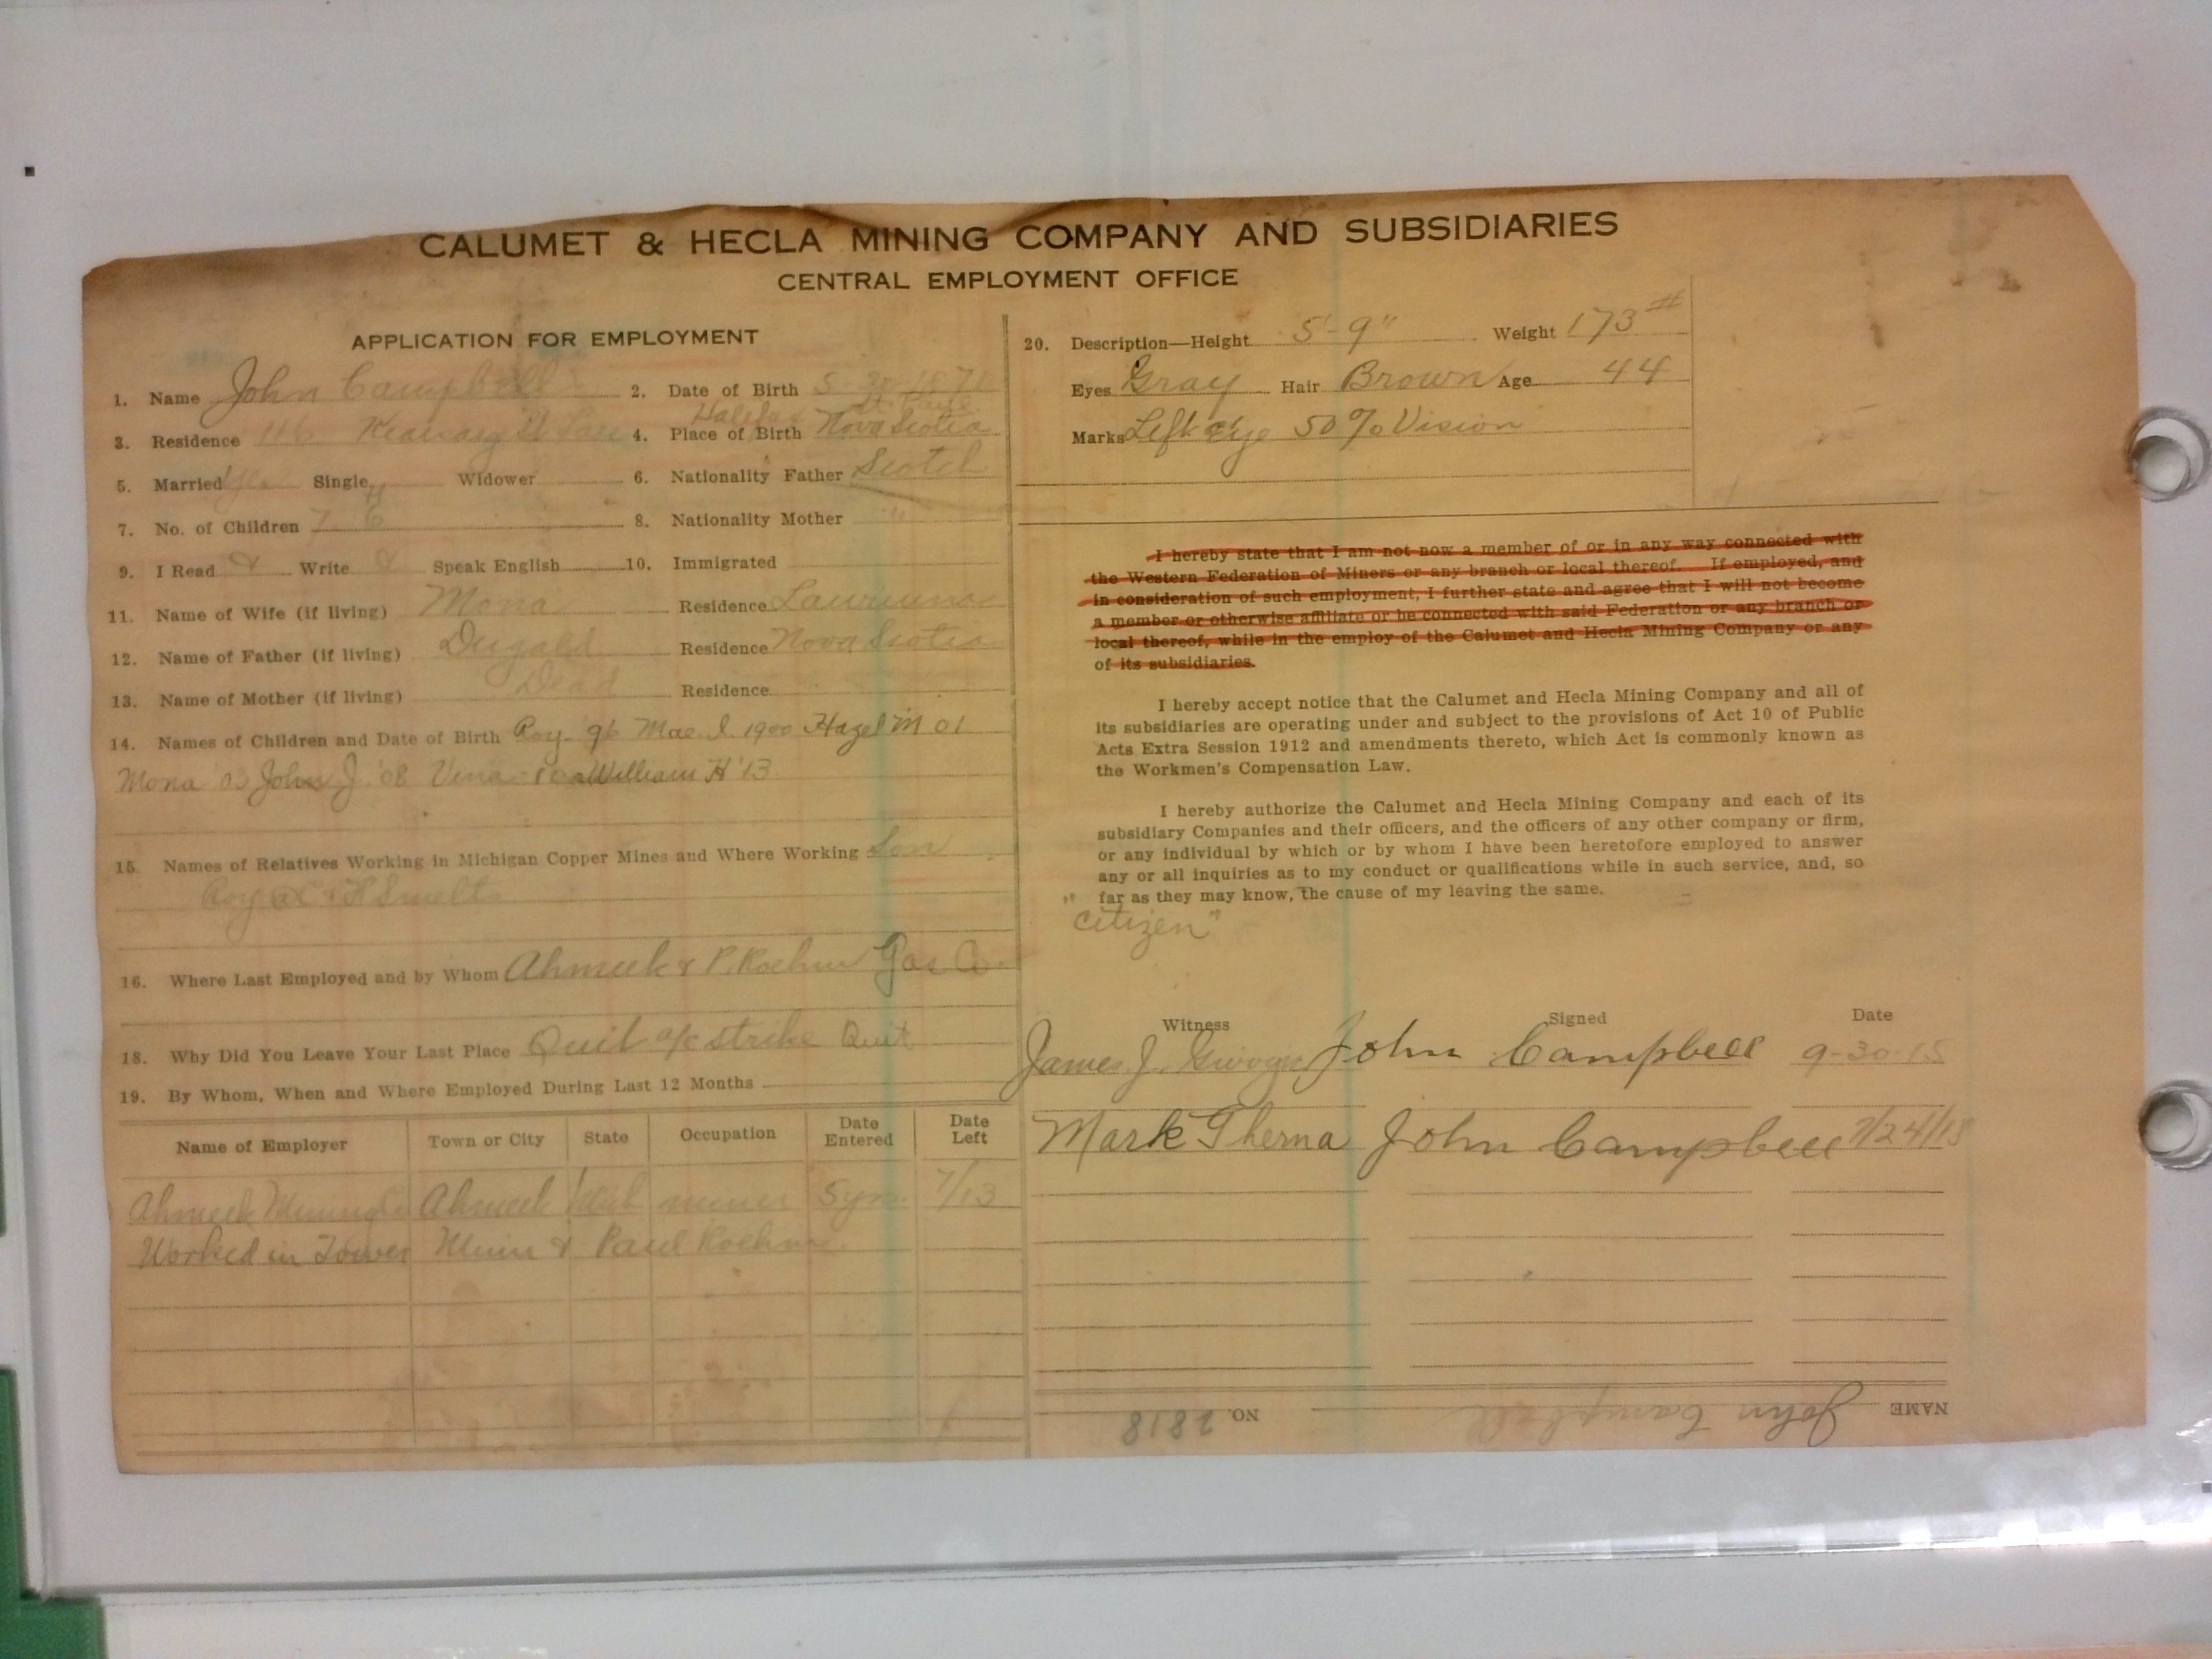 CALUMET & HECLA MINING COMPANY AND SUBSIDIARIES
CENTRAL EMPLOYMENT OFFICE
APPLICATION FOR EMPLOYMENT
1. Name John Campbell 2. Date of Birth 5-30-1871
Halifax
3. Residence 116 Kearsarge St 4. Place of Birth Nova Scotia
5. Married Yes Single Widower 6. Nationality Father Scotch
7. No. of Children 7 6 8. Nationality Mother "
9. I Read & Write & Speak English 10. Immigrated
11. Name of Wife (if living) Mona Residence Laurium
12. Name of Father (if living) Dugald Residence Nova Scotia
13. Name of Mother (if living) Dead Residence
14. Names of Children and Date of Birth Roy 96 Mae I. 1900 Hazel M 01
Mona 03 John J. '08 Vina William H '13
15. Names of Relatives Working in Michigan Copper Mines and Where Working Son
Roy @ C & H Smelt
16. Where Last Employed and by Whom Ahmeek & P. Roehm Gas Co.
18. Why Did You Leave Your Last Place Quit a/c strike Quit
19. By Whom, When and Where Employed During Last 12 Months
Name of Employer Town or City State Occupation Date Entered Date Left
Ahmeek Mining Co Ahmeek Mich miner 5 yrs. 7/13
Worked in Tower Minn & Paul Roehm
20. Description—Height 5'-9" Weight 173#
Eyes Gray Hair Brown Age 44
Marks Left eye 50% Vision
I hereby state that I am not now a member of or in any way connected with
the Western Federation of Miners or any branch or local thereof. If employed, and
in consideration of such employment, I further state and agree that I will not become
a member or otherwise affiliate or be connected with said Federation or any branch or
local thereof, while in the employ of the Calumet and Hecla Mining Company or any
of its subsidiaries.
I hereby accept notice that the Calumet and Hecla Mining Company and all of
its subsidiaries are operating under and subject to the provisions of Act 10 of Public
Acts Extra Session 1912 and amendments thereto, which Act is commonly known as
the Workmen's Compensation Law.
I hereby authorize the Calumet and Hecla Mining Company and each of its
subsidiary Companies and their officers, and the officers of any other company or firm,
or any individual by which or by whom I have been heretofore employed to answer
any or all inquiries as to my conduct or qualifications while in such service, and, so
far as they may know, the cause of my leaving the same.
"citizen"
Witness Signed Date
James J. John Campbell 9-30-15
Mark Therna John Campbell 7/24/18
NAME John Campbell NO. 2818